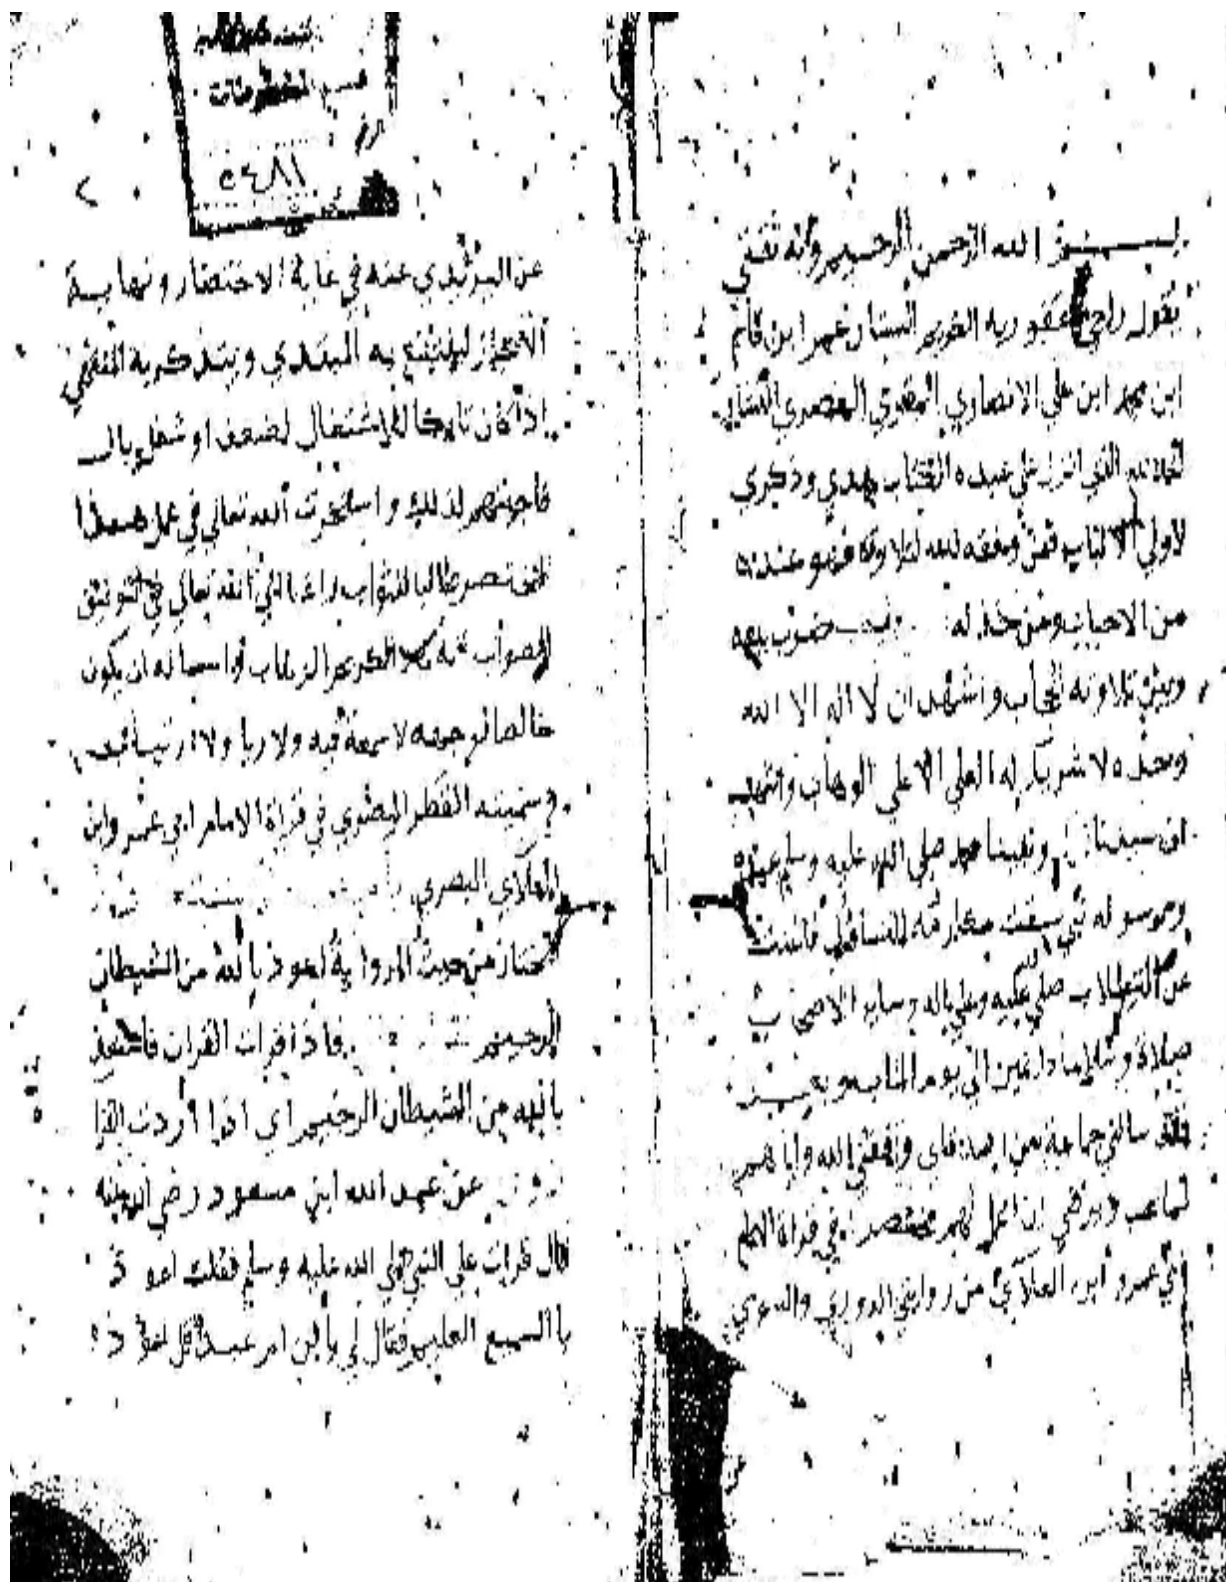 بسم الله الرحمن الرحيم وبه ثقتي
يقول راجي عفو ربه الغفور الستار عمر ابن قاسم
ابن محمد ابن علي الانصاري المقري المصري
الحمد لله الذي انزل علي عبده الكتاب هدي وذكري
لاولي الالباب فمن وفقه لله لتلاوته فهو عنده
من الاحباب ومن خذله ضرب بينه
وبين تلاوته الحجاب واشهد ان لا اله الا الله
وحده لا شريك له العلي الاعلي الوهاب واشهد
ان سيدنا ونبينا محمد صلي الله عليه وسلم عبده
ورسوله نبي
عن صلي عليه وعلي اله وساير الاصحاب
صلاة وسلاما دايمين الي يوم الماب وبعد
فقد سالني جماعة من اصدقاي وفقني الله واياهم
لما يحب ويرضي ان اعمل لهم مختصرا في قراة الامام
ابي عمرو ابن العلاي من روايتي الدوري والسوسي
قسم المخطوطات
الرقم
٥٤٨١
٢
عن اليزيدي عنه في غاية الاختصار ونهاية
الايجاز لينتفع به المبتدي ويتذكر به المنتهي
اذا كان تاركا للاشتغال لضعف او شغل بال
فاجبتهم لذلك واستخرت الله تعالي في عمل هذا
المختصر طالبا للثواب راغبا الي الله تعالي في التوفيق
للصواب الكريم الوهاب واساله ان يكون
خالصا لوجهه لا سمعة فيه ولا ريا ولا ارتياب
وسميته القطر المصري في قراة الامام ابي عمرو ابن
العلاي البصري
المختار من حيث الرواية اعوذ بالله من الشيطان
الرجيم فاذا قرات القران فاستعذ
بالله من الشيطان الرجيم اي اذا اردت القرا
عن عبد الله ابن مسعود رضي الله عنه
قال قرات علي النبي صلي الله عليه وسلم فقلت اعوذ
بالسميع العليم فقال لي يا ابن ام عبد قل اعوذ